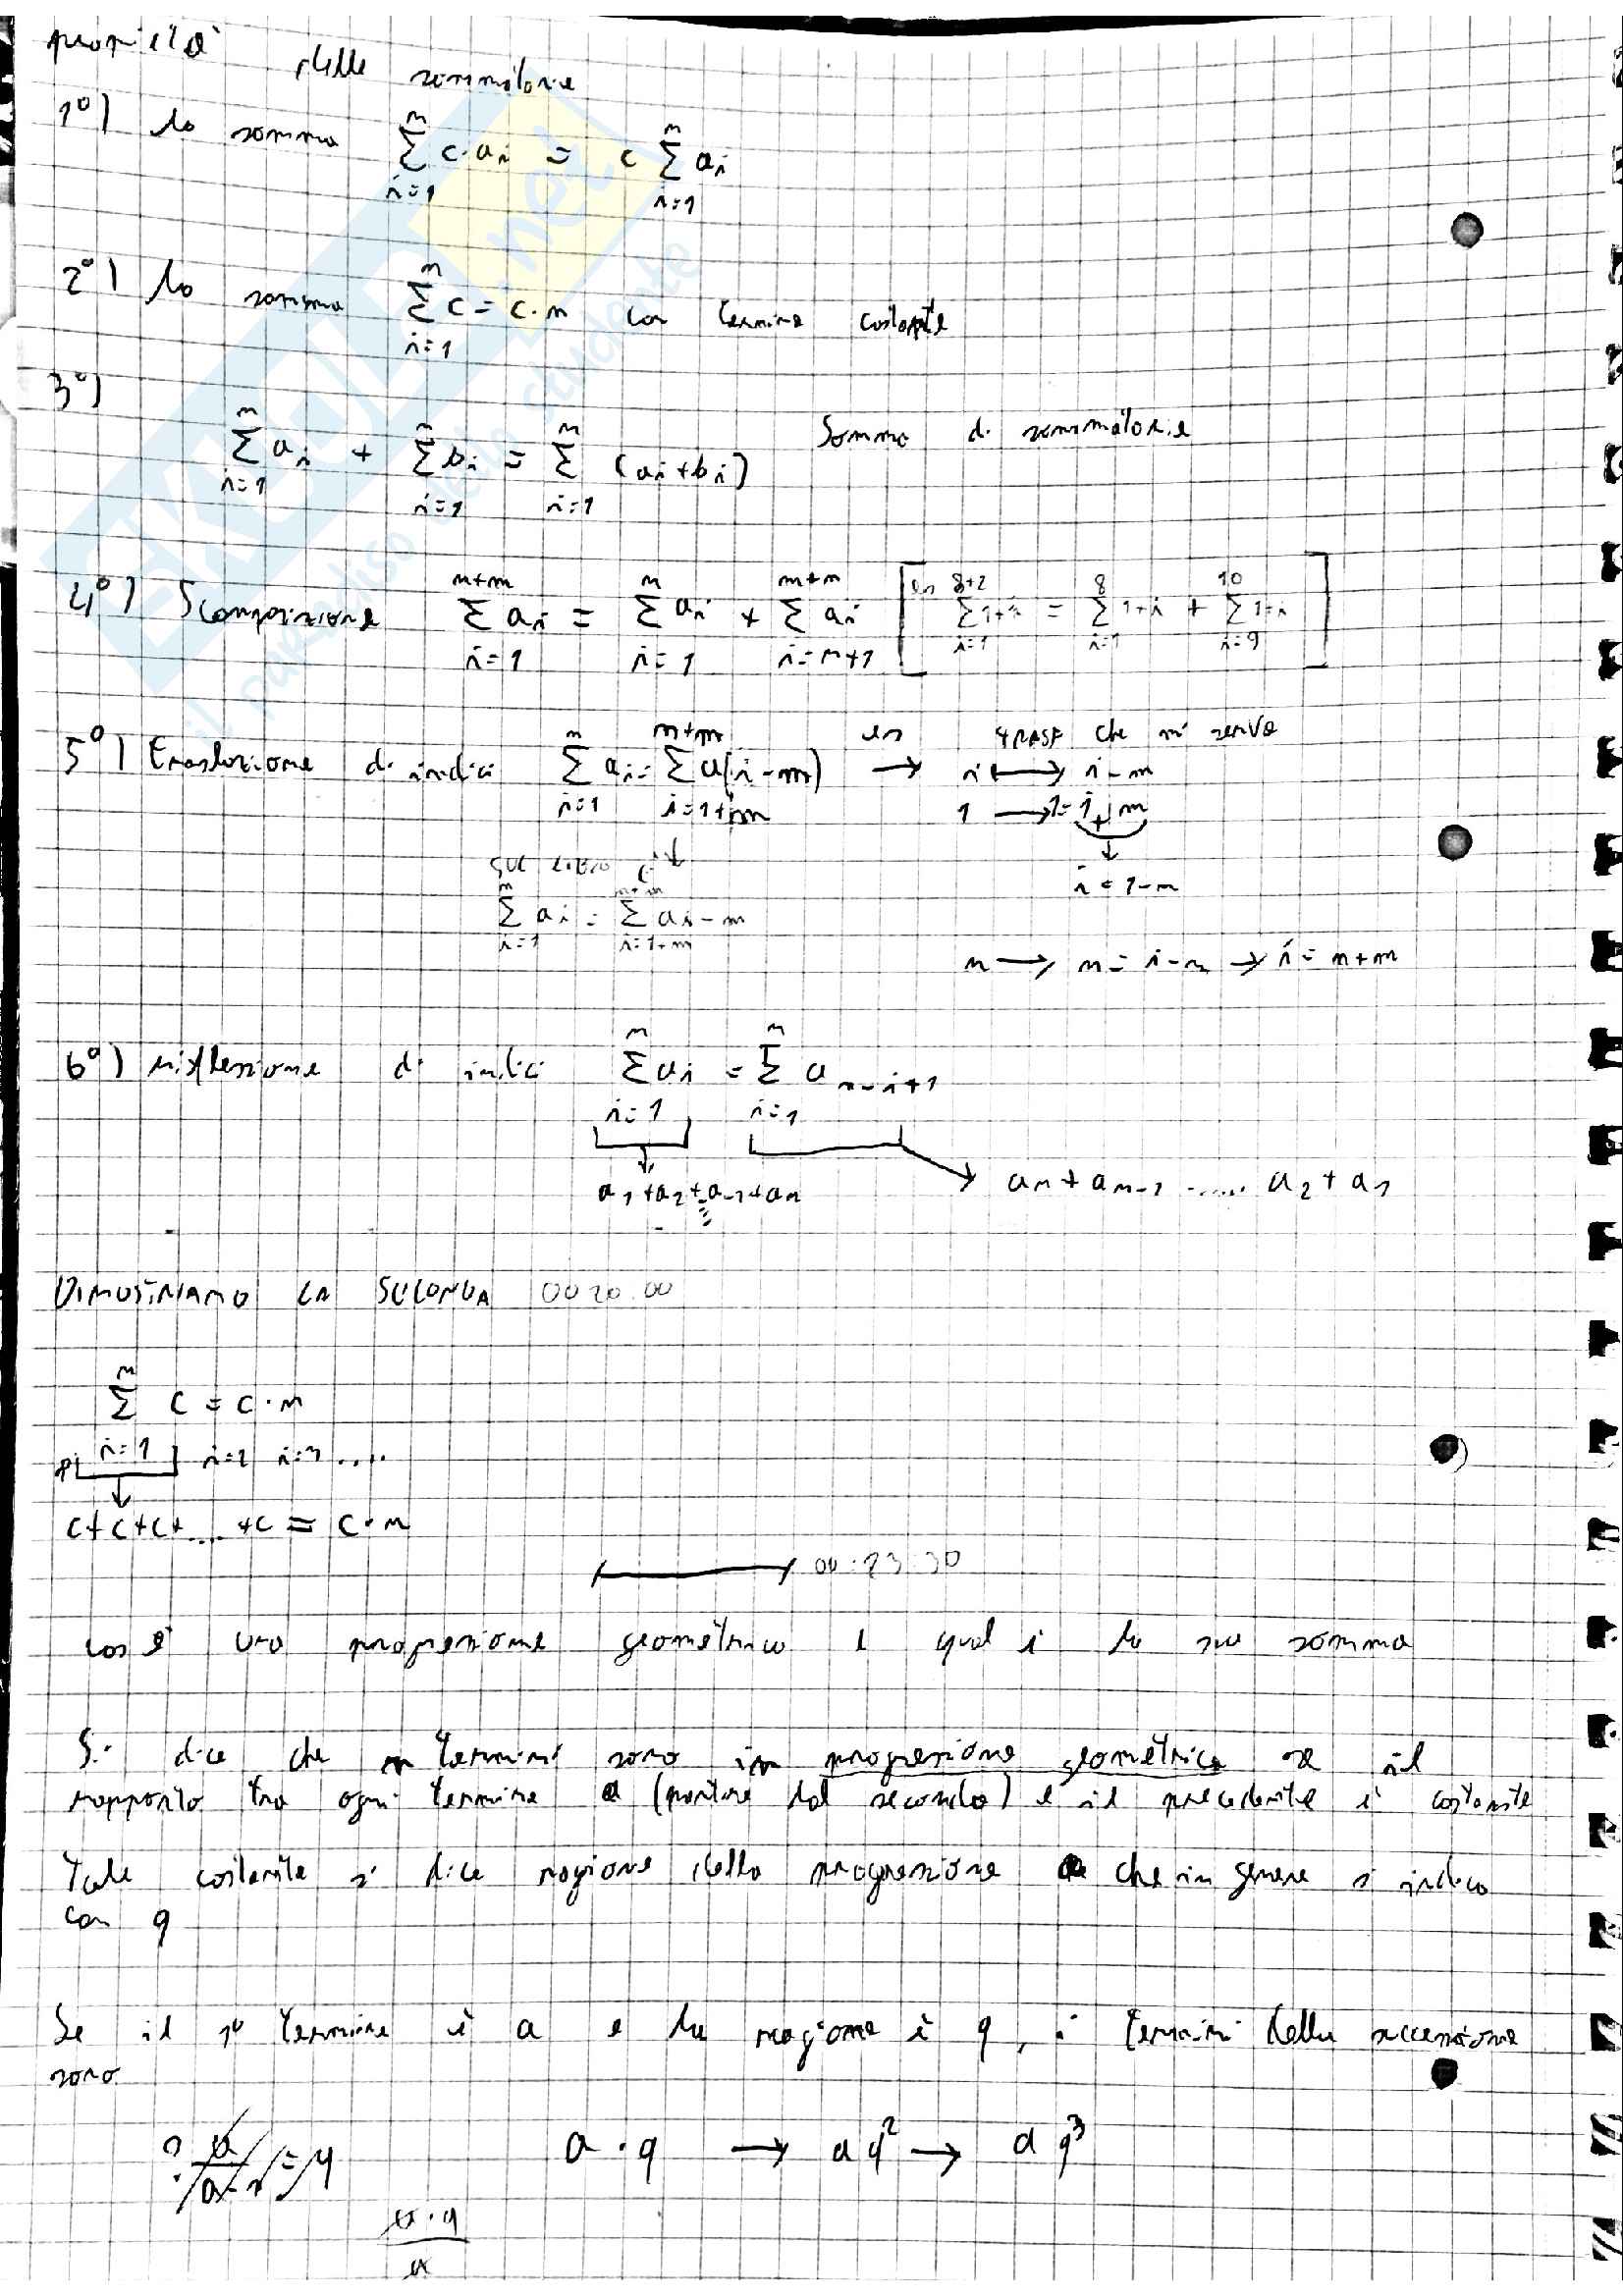 proprietà delle sommatorie
1°) la somma $\sum_{i=1}^{n} c \cdot a_i = c \sum_{i=1}^{n} a_i$
2°) la somma $\sum_{i=1}^{n} c = c \cdot n$ con termine costante
3°)
$\sum_{i=1}^{n} a_i + \sum_{i=1}^{n} b_i = \sum_{i=1}^{n} (a_i + b_i)$ Somma di sommatorie
4°) Scomposizione $\sum_{i=1}^{n+m} a_i = \sum_{i=1}^{n} a_i + \sum_{i=n+1}^{m+n} a_i$ [es $\sum_{i=1}^{8+2} 1+i = \sum_{i=1}^{8} 1+i + \sum_{i=9}^{10} 1+i$]
5°) traslazione di indici $\sum_{i=1}^{n} a_i = \sum_{i=1+m}^{n+m} a(i-m)$ es → TRASF che mi serve
i ⟷ i-m
1 → 1=i+m
↓
i = 1-m
SUL LIBRO È
$\sum_{i=1}^{n} a_i = \sum_{i=1+m}^{n+m} a_{i-m}$
n → n = i-m → i = n+m
6°) riflessione di indici $\sum_{i=1}^{n} a_i = \sum_{i=1}^{n} a_{n-i+1}$
a_1 + a_2 + a_{-1} + a_n
a_n + a_{n-1} ..... a_2 + a_1
DIMOSTRIAMO LA SECONDA 00 20.00
$\sum_{i=1}^{n} c = c \cdot n$
i=2 i=3 ....
c+c+c+ .... +c = c·n
00:23:30
cos è una progressione geometrica e qual è la sua somma
Si dice che n termini sono in progressione geometrica se il
rapporto tra ogni termine a (partire dal secondo) e il precedente è costante
Tale costante si dice ragione della progressione che in genere si indica
con q
Se il 1° termine è a e la ragione è q, i termini della successione
sono
a · q → a q² → a q³
a · q
a
SKUOLA.net
il paradiso dello studente